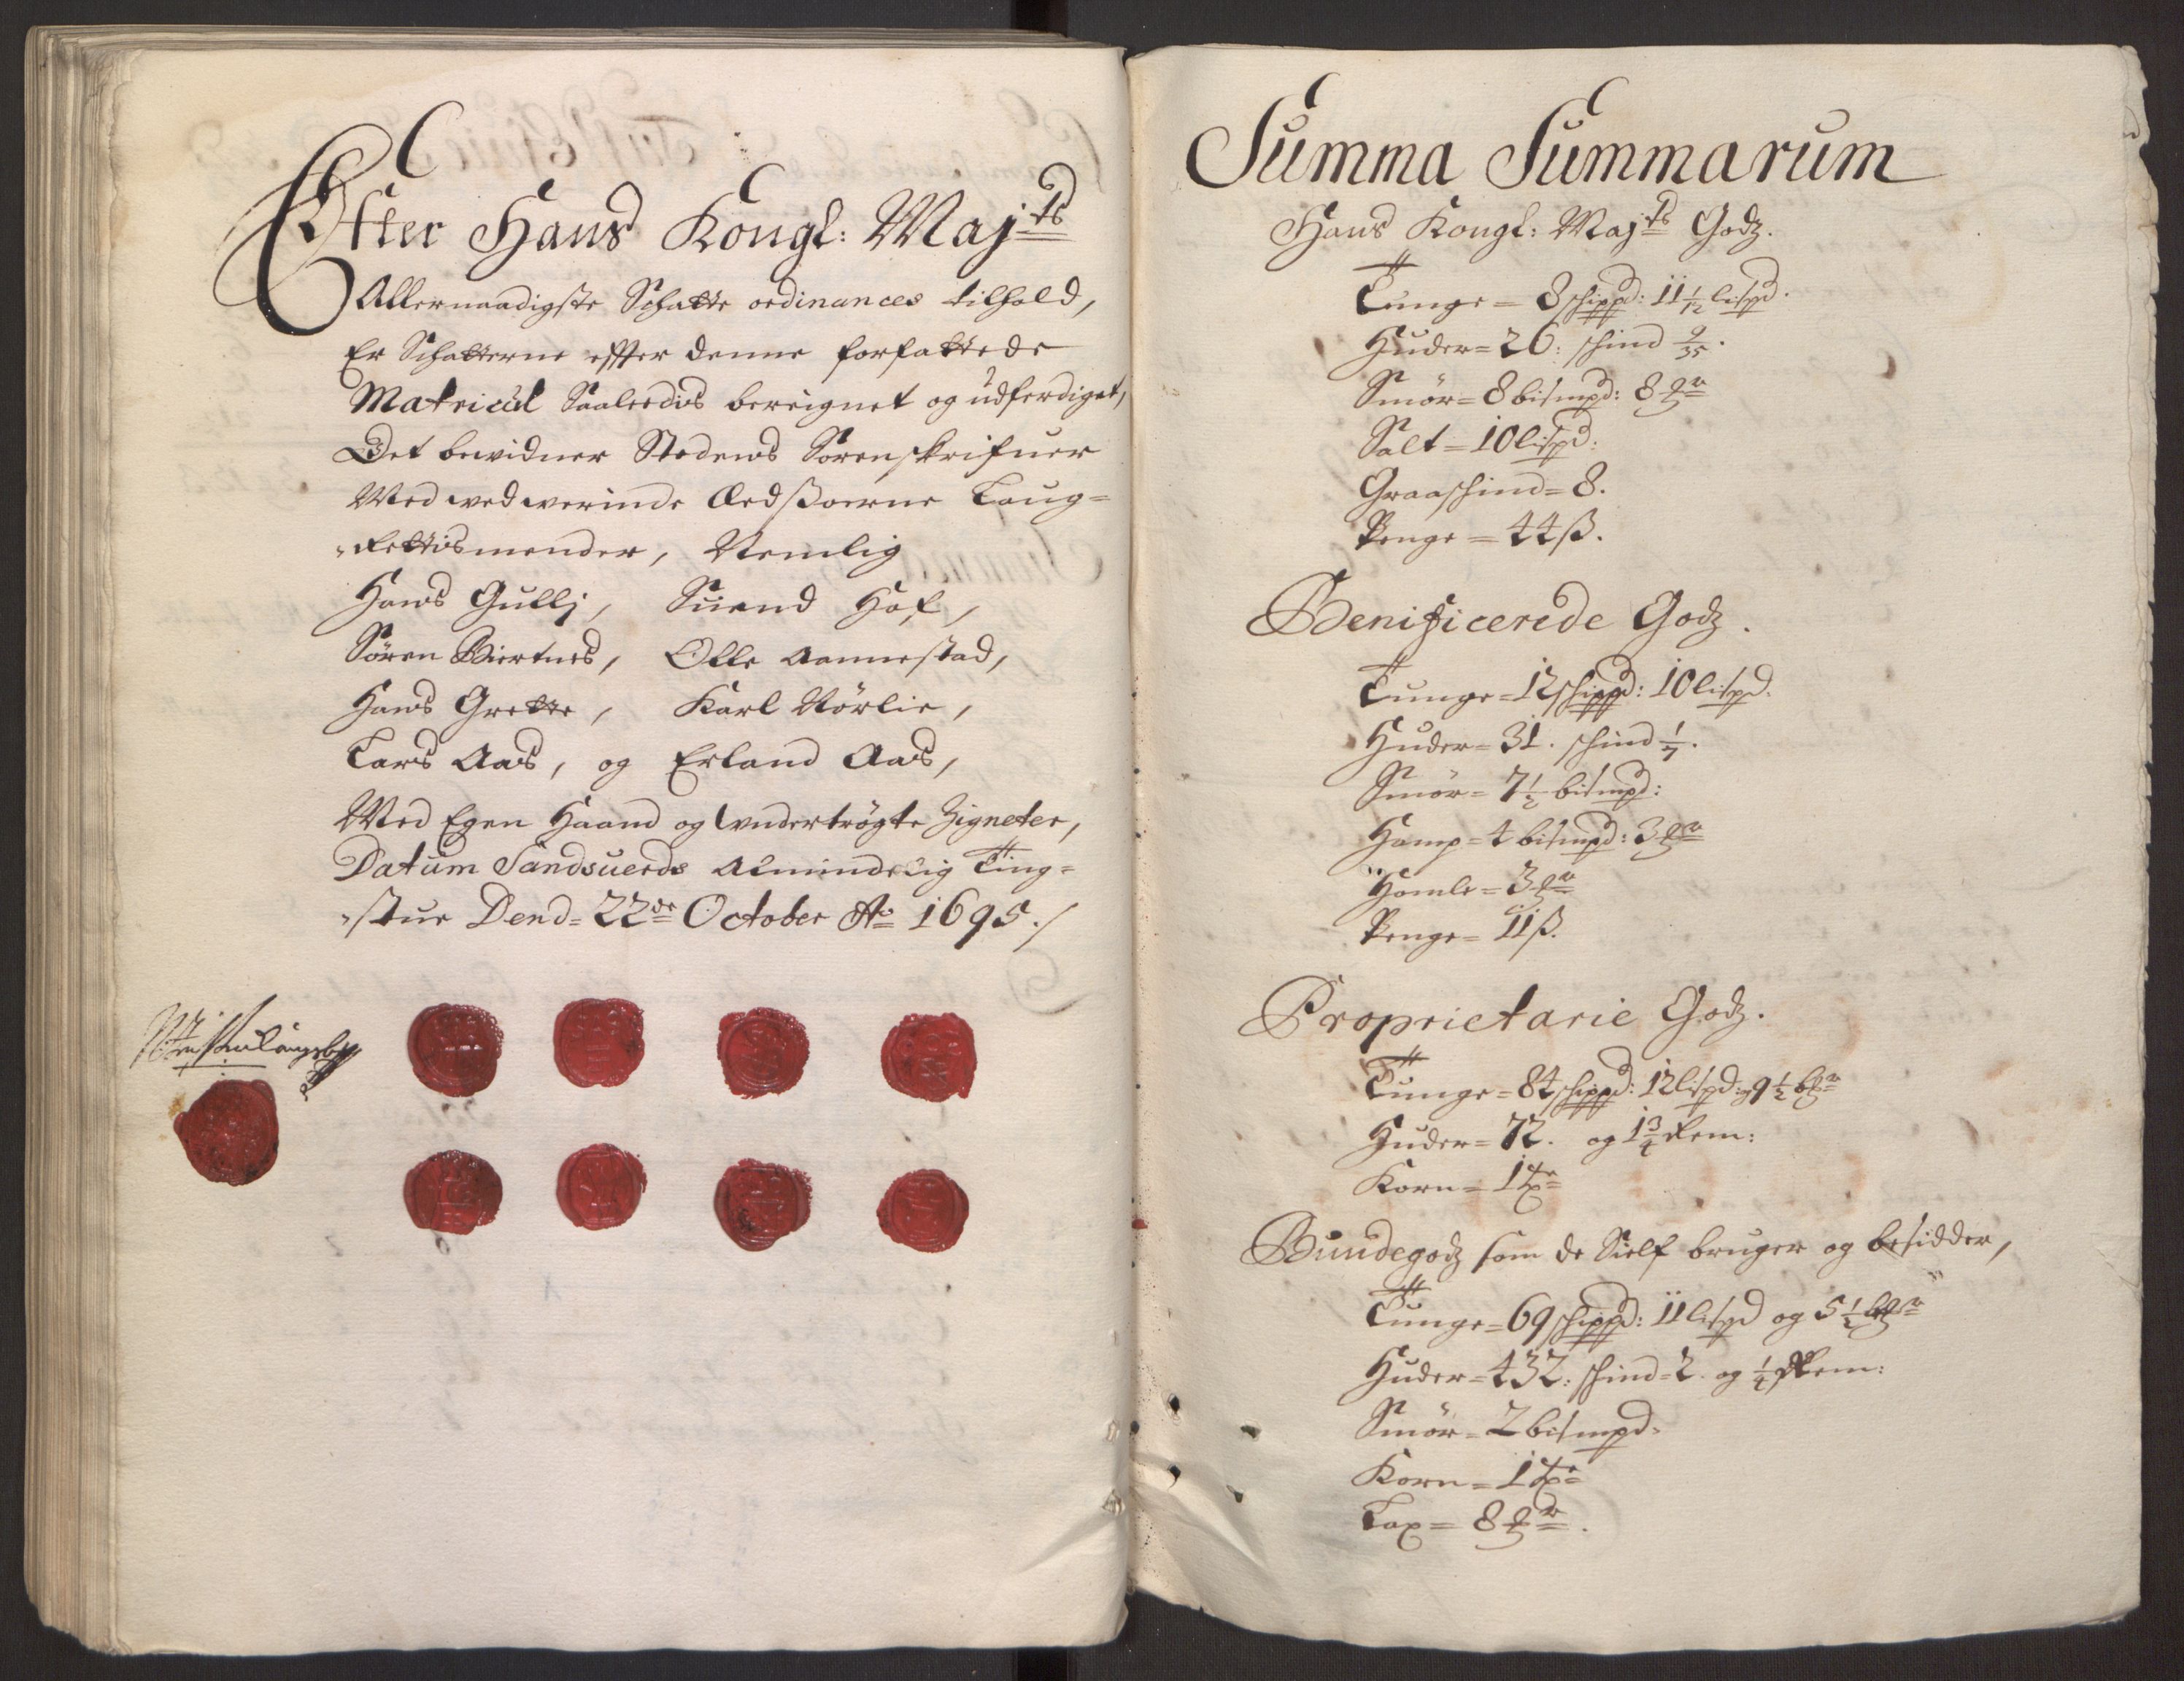 Efter Hans Kongl: Maj:ts
Allernaadigste Schatte ordinances tilhold,
Er Schatterne effter denne forfattede
Matricul Saaledis bereignet og udferdiget,
Det bewidner Stedens Sorenskrifuer
Med wed werinde Ædsßorne Laug=
rettismender, Nemlig
Hans Gullj, Suend Hof,
Sören Biertnes, Olle Aannestad,
Hans Grette, Karl Nörlie,
Lars Aas, og Erland Aas,
Med Egen Haand og undertrögte Zigneter,
Datum Sandsuerds Almindelig Ting=
stue Dend= 22de October Ao 1695./
Summa Summarum
Hans Kongl: Maj:ts Godz.
Tunge = 8 schippd: 11 1/12 lispd.
Huder = 26: schind 9/35.
Smör = 8 bismpd: 8 ℔r
Salt = 10 lispd:
Graaschind = 8.
Penge = 44 ß.
Benificerede Godz.
Tunge = 12 schippd: 10 lispd.
Huder = 31. schind 1/7.
Smör = 7 1/2 bismpd:
Hamp = 4 bismpd: 3 ℔r
Homle = 3 ℔r
Penge = 11 ß.
Proprietarie Godz.
Tunge = 84 schippd: 12 lispd: og 9 1/2 b℔r
Huder = 72. og 1 3/4 Rem:
Korn = 1 tr
Bundegodz som de Sielf bruger og besidder,
Tunge = 69 schippd: 11 lispd og 5 1/2 b℔r
Huder = 432: schind = 2. og 1/4 Rem:
Smör = 2 bismpd:
Korn = 1 tr
Lax = 8 ℔r.